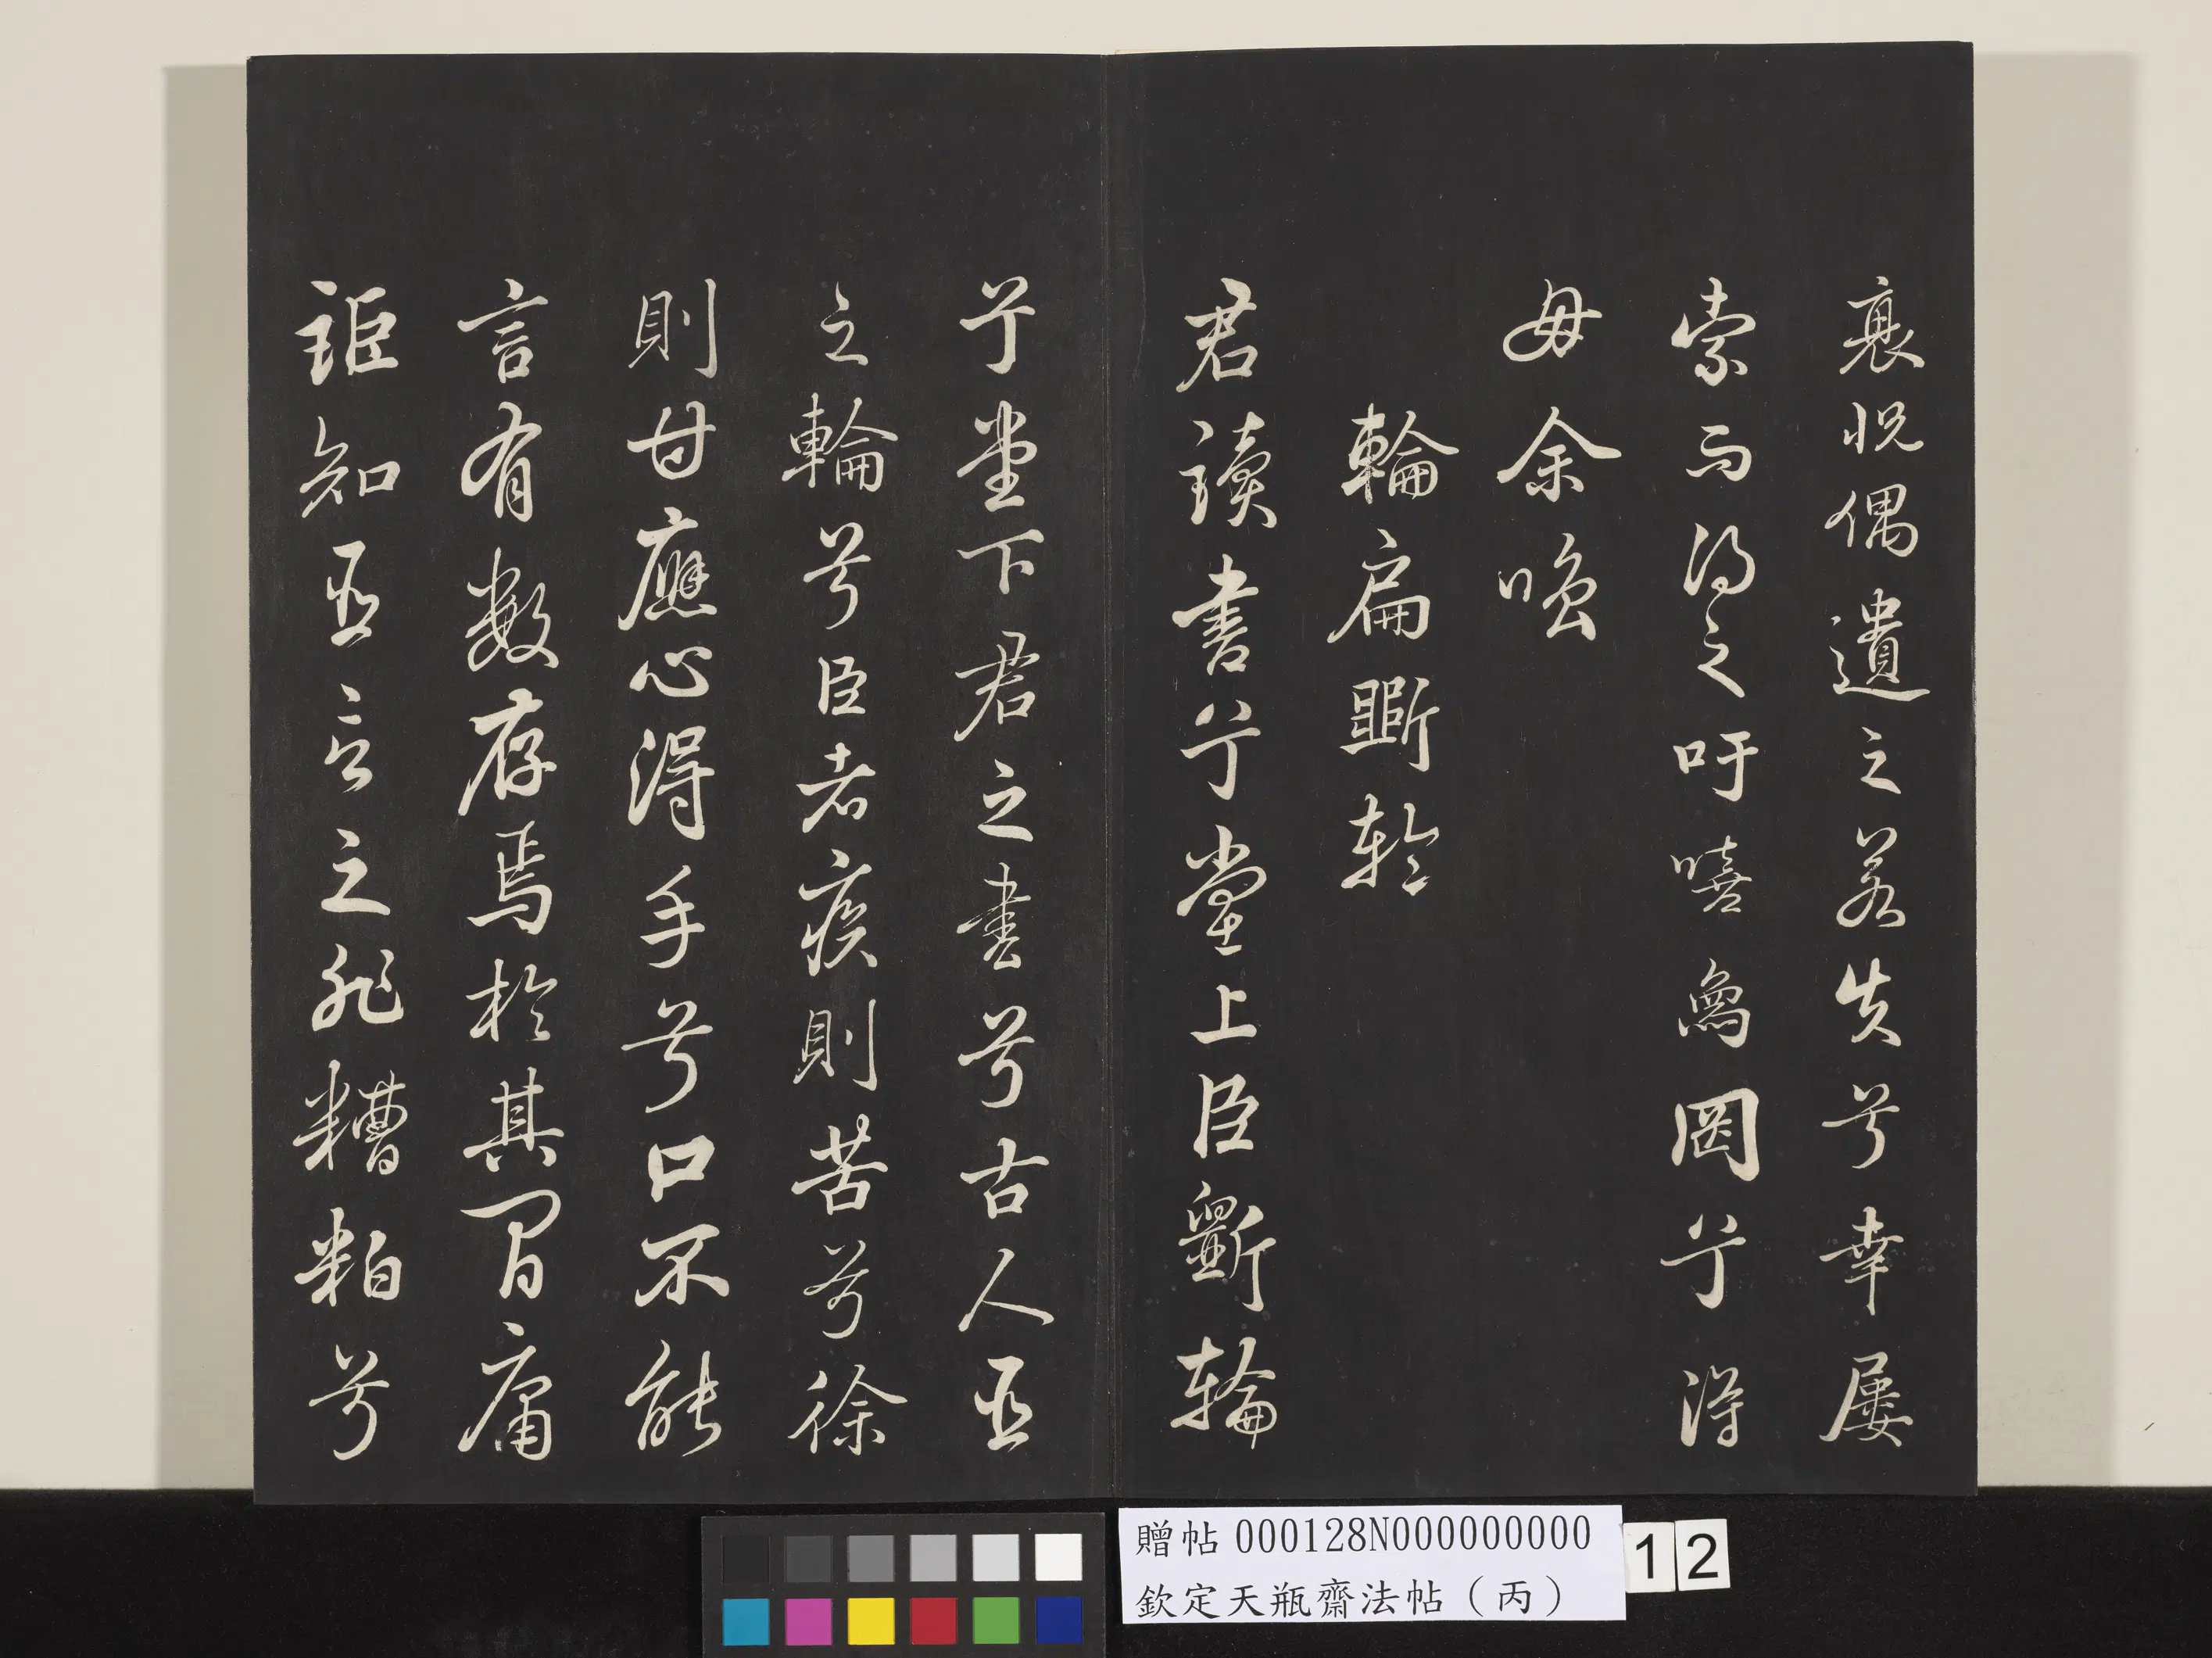 怳偶遺之若失兮幸屢
索而得之吁嘻象罔兮得
毋余
輪扁斲輪
君讀書兮堂上臣斲輪
兮堂下君之書兮古人臣
之輪兮臣者疾則苦兮徐
則甘應心得手兮口不能
言有數存焉於其間庸
詎知臣言之非糟粕兮
贈帖 000128N000000000
欽定天瓶齋法帖（丙）
12